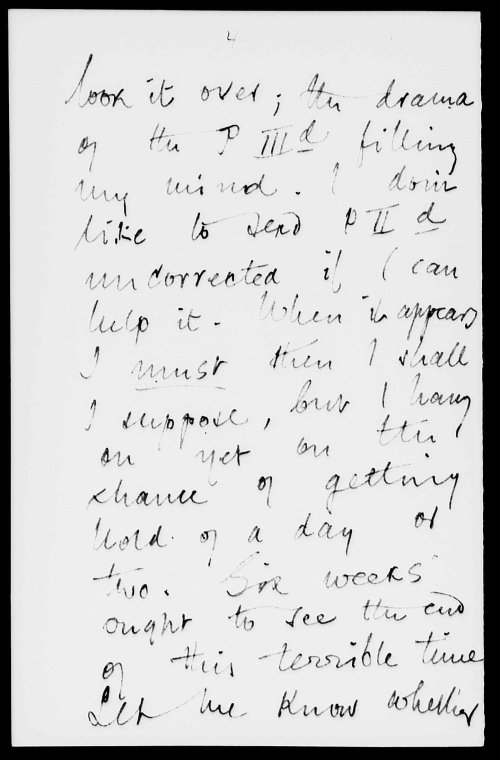 4
look it over; the drama
of the P IIId filling
my mind. I don't
like to send P IId
uncorrected if I can
help it. When it appears
I must then I shall
I suppose, but I hang
on yet on the
chance of getting
hold of a day or
two. Six weeks
ought to see the end
of this terrible time
Let me know whether